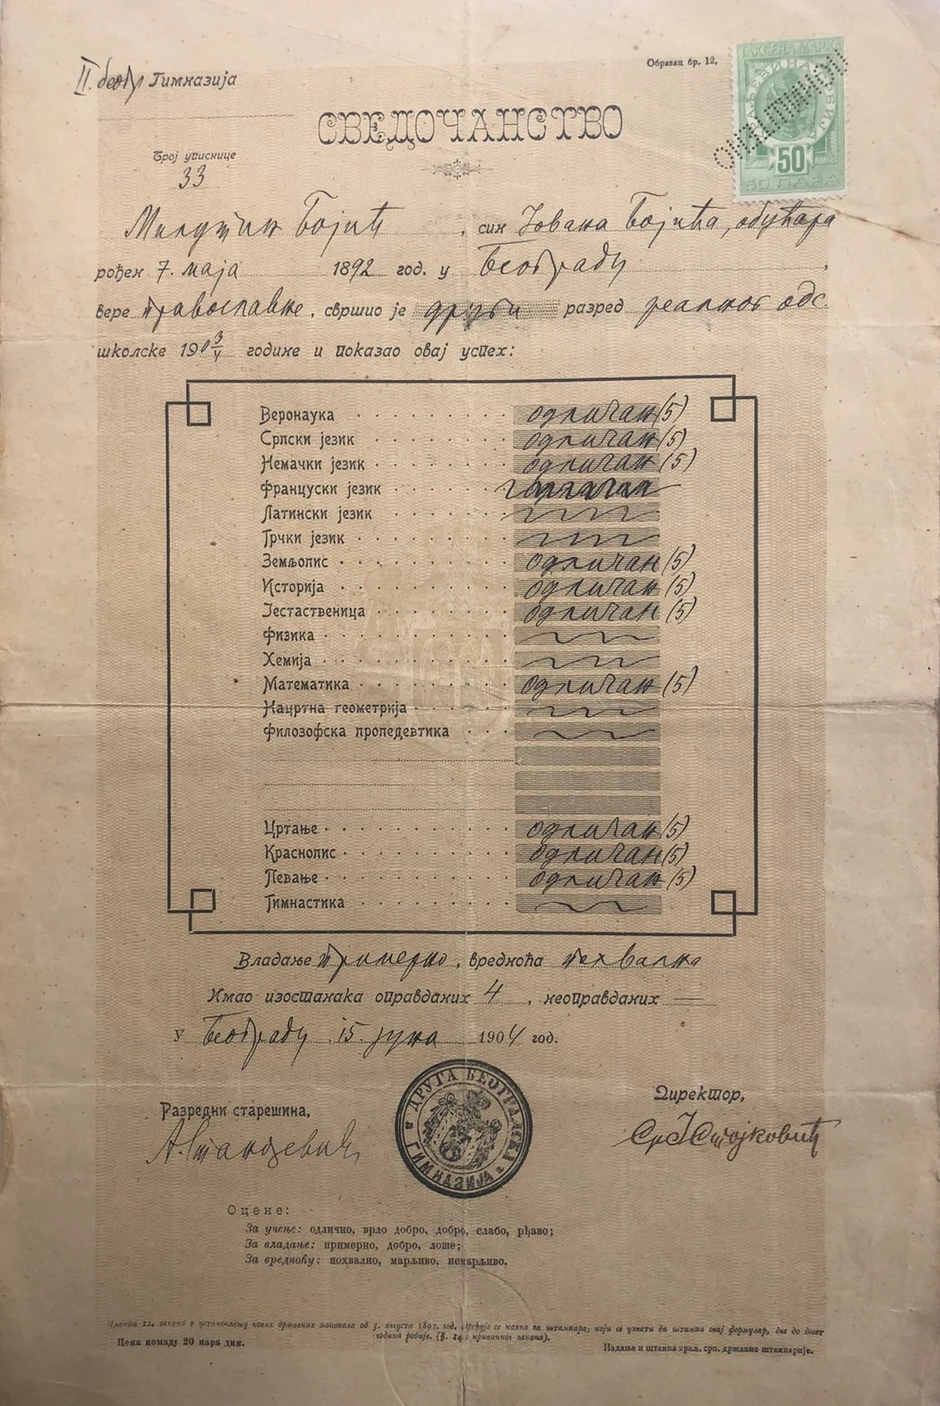 II. беог. Гимназија
Образац бр. 12.
ТАКСЕНА МАРКА
50
50 ПАРА
СВЕДОЧАНСТВО
Број уписнице
33
Милутин Бојић, син Јована Бојића, обућара
рођен 7. маја 1892 год. у Београду,
вере православне, свршио је други разред реалног одс.
школске 1903/4 године и показао овај успех:
Веронаука одличан (5)
Српски језик одличан (5)
Немачки језик одличан (5)
Француски језик
Латински језик
Грчки језик
Земљопис одличан (5)
Историја одличан (5)
Јестаственица одличан (5)
Физика
Хемија
Математика одличан (5)
Нацртна геометрија
Филозофска пропедевтика
Цртање одличан (5)
Краснопис одличан (5)
Певање одличан (5)
Гимнастика
Владање примерно, вредноћа похвална
Имао изостанака оправданих 4, неоправданих —
У Београду 15. јуна 1904 год.
Разредни старешина,
Директор,
ДРУГА БЕОГРАДСКА ГИМНАЗИЈА
Ср. Ј. Стојковић
Оцене:
За учење: одлично, врло добро, добро, слабо, рђаво;
За владање: примерно, добро, лоше;
За вредноћу: похвално, марљиво, немарљиво.
Чланом 23. закона о установљењу нових државних монопола од 3. августа 1893. год. одређује се казна за штампара, који се ухвати да штампа овај формулар, две до десет
година робије. (§. 147 кривичног закона).
Цена комаду 20 пара дин.
Издање и штампа краљ. срп. државне штампарије.